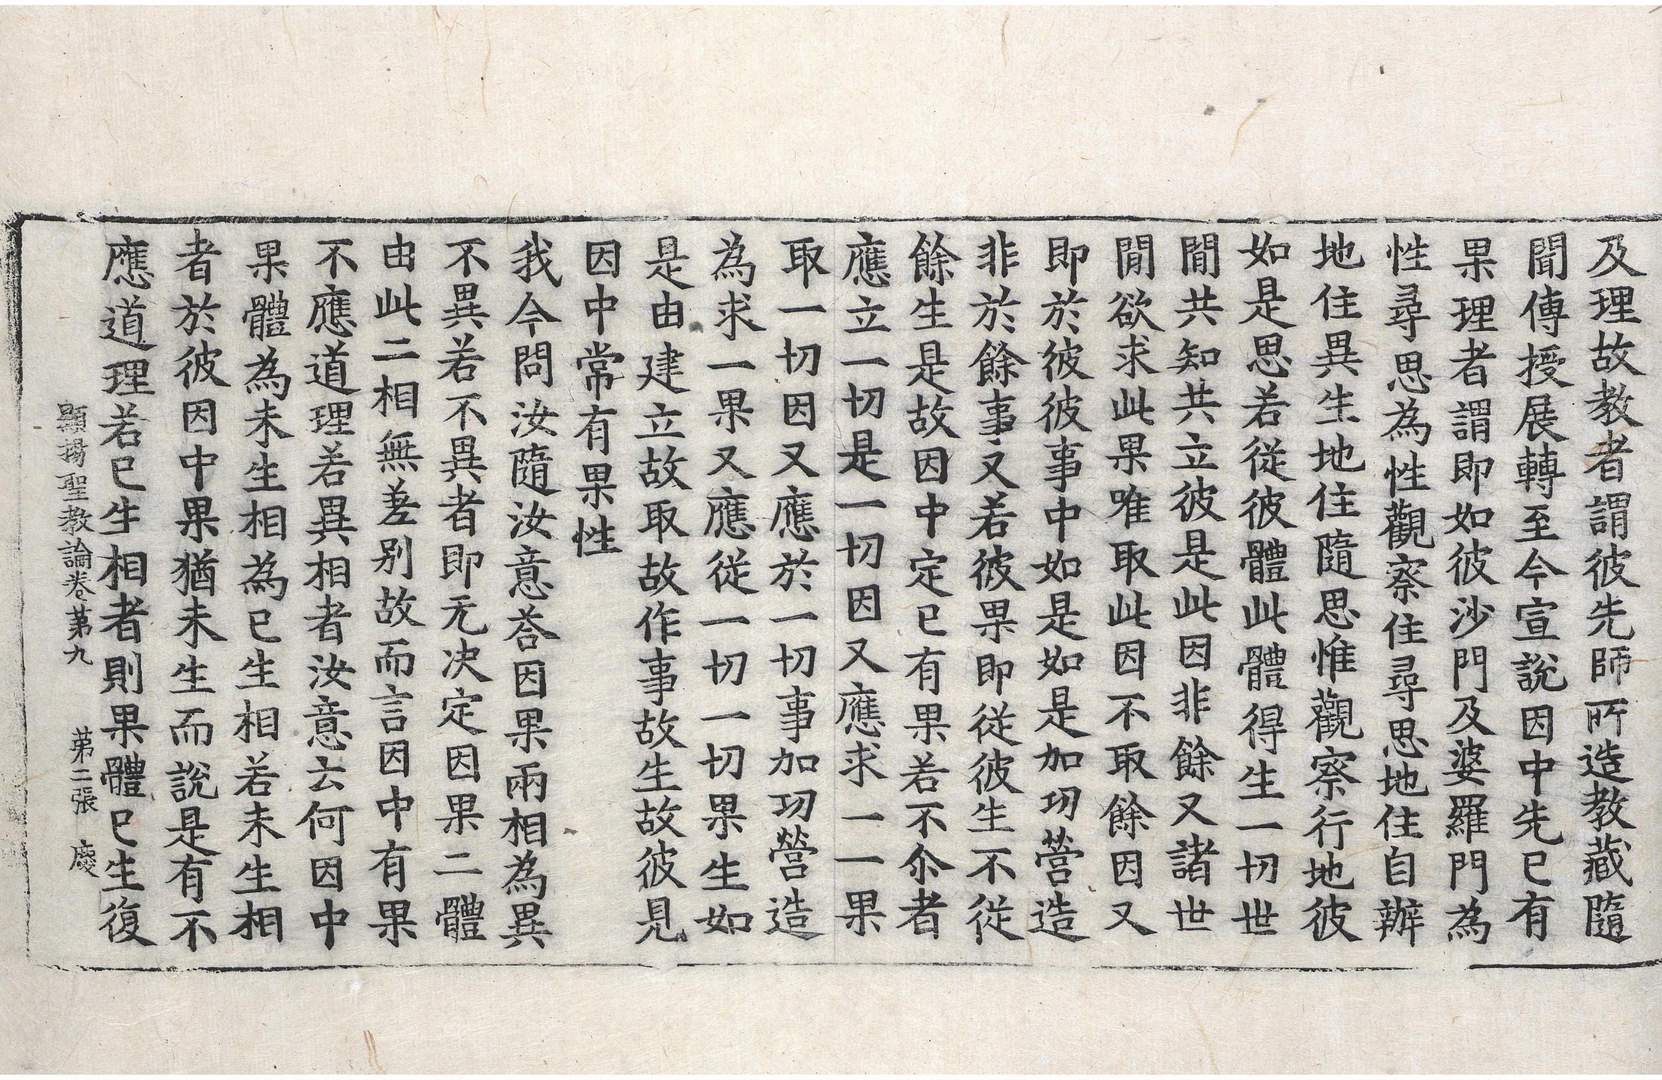 及理故教者謂彼先師所造教藏隨
聞傳授展轉至今宣說因中先已有
果理者謂即如彼沙門及婆羅門為
性尋思為性觀察住尋思地住自辦
地住異生地住隨思惟觀察行地彼
如是思若從彼體此體得生一切世
間共知共立彼是此因非餘又諸世
間欲求此果唯取此因不取餘因又
即於彼彼事中如是如是加功營造
非於餘事又若彼果即從彼生不從
餘生是故因中定已有果若不尒者
應立一切是一切因又應求一一果
取一切因又應於一切事加功營造
為求一果又應從一切一切果生如
是由建立故取故作事故生故彼見
因中常有果性
我今問汝隨汝意荅因果兩相為異
不異若不異者即无決定因果二體
由此二相無差別故而言因中有果
不應道理若異相者汝意云何因中
果體為未生相為已生相若未生相
者於彼因中果猶未生而說是有不
應道理若已生相者則果體已生復
顯揚聖教論卷第九 第二張 慶